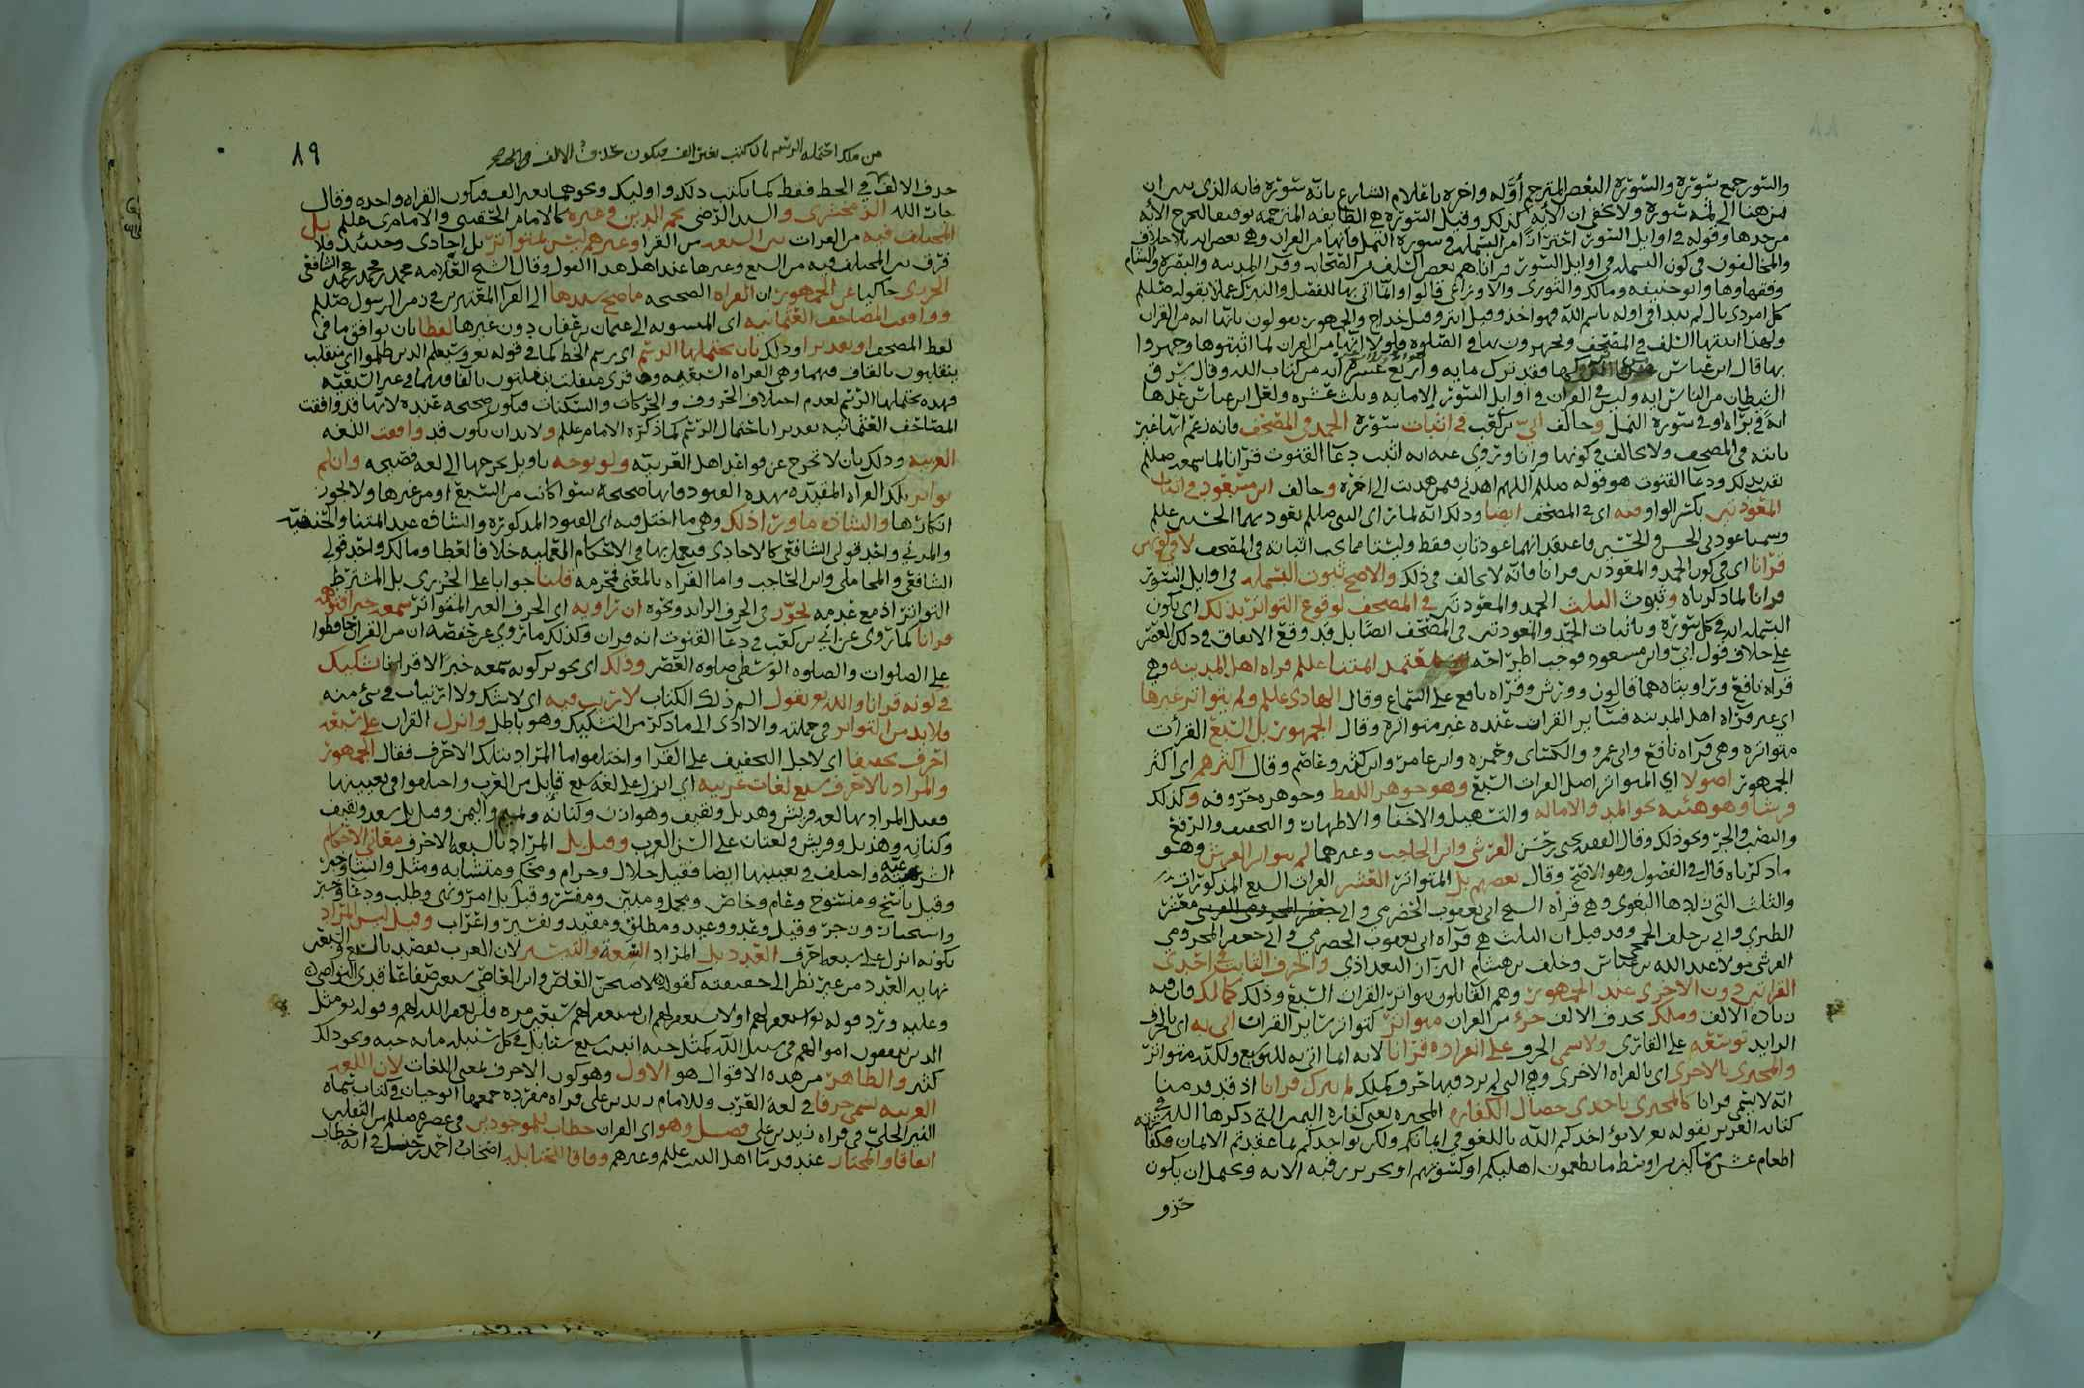 والسور جمع سورة والسورة البعض المترجم أوله واخره باعلام الشارع بانه سورة فانه الذى
من هنا الى ثمه سورة ولا يخفى ان الآية كذلك وقيل السورة هي الطايفة المترجمة توقيفا لتخرج الآية
وقوله في اوايل السور احترازا من البسملة في سورة النمل فانها من القران وهي بعض اية بلا خلاف
والمخالفون في كون البسملة في اوايل السور قرانا هم بعض السلف من الصحابة وقرا المدينة والبصرة والشام
وفقهاوها وابو حنيفة ومالك والثورى والاوزاعى قالوا وانما اتى بها للفصل والتبرك عملا بقوله صللم
كل امر ذى بال لم يبدا في اوله باسم الله فهو اجذم وقيل ابتر وقيل خداج والجمهور يقولون بانها اية من القران
ولهذا اثبتها السلف في المصحف ويجهرون بها في الصلوة ولولا انها من القران لما اثبتوها وجهروا
بها قال ابن عباس من تركها فقد ترك مايه واربع عشرة اية من كتاب الله وقال سرق
الشيطان من الناس اية وليس في القران في اوايل السور الا مايه وثلث عشرة ولعل ابن عباس عدها
اية في براة او في سورة النمل وخالف ابي بن كعب في اثبات سورة الحمد في المصحف فانه زعم انها غير
ثابتة في المصحف ولا يخالف في كونها قرانا وتروى عنه انه اثبت دعا القنوت قرانا لما سمعه صللم
ودعا القنوت هو قوله صللم اللهم اهدني فيمن هديت الى اخره وخالف ابن مسعود في اثبات
المعوذتين بكسر الواو فيه اى في المصحف ايضا وذلك انه لما راى النبي صللم يعوذ بهما الحسنين عللم
فاعتقد انهما عوذتان فقط وليستا مما يجب اثباته في المصحف لا في كونهن
قرانا اى في كون الحمد والمعوذتين قرانا فانه لا يخالف في ذلك والاصح ثبوت البسملة في اوايل السور
قرانا لما ذكرناه وثبوت الثلث الحمد والمعوذتين في المصحف لوقوع التواتر بذلك اى بكون
البسملة اية في كل سورة وباثبات الحمد والمعوذتين في المصحف ايضا بل قد وقع الاتفاق في ذلك العصر
على خلاف قول ابي وابن مسعود فوجب اطراحه معتمد ائمتنا عللم قراة اهل المدينة وهي
قراة نافع وراوياه هما قالون وورش وقراه نافع على السماع وقال الهادى عللم ولم يتواتر غيرها
اي غير قراة اهل المدينة فساير القرات عنده غير متواترة وقال الجمهور بل السبع القرأت
متواترة وهي قرآه نافع وابي عمرو والكسائى وحمزة وابن عامر وابن كثير وعاصم وقال اكثرهم اى اكثر
الجمهور اصولا اي المتواتر اصل القرات السبع وهو جوهر اللفظ وجوهره حروفه وكذلك
فرشا وهو هيئته نحو المد والامالة والتسهيل والاخفا والاظهار والتخفيف والرفع
والنصب والجر ونحو ذلك وقال الفقيه يحيى بن حسن القرشى وابن الحاجب وغيرهما لم يتواتر الفرش وهو
ما ذكرناه قال في الفصول وهو الاصح وقال بعضهم بل المتواتر العشر القرات السبع المذكورات
والثلث التى زادها البغوى وهي قراة ابي يعقوب الحضرمي
الطبرى وابي بن خلف الجمحي وقد قيل ان الثلث هي قراه ابي يعقوب الحضرمي وابي جعفر المخزومي
القرشى مولا عبد الله بن عباس وخلف بن هشام البزار البغداذي والحرف الثابت في احدى
القراتين دون الاخرى عند الجمهور وهم القايلون بتواتر القرات السبع وذلك كمالك فان فيه
زيادة الالف وملك بحذف الالف جزء من القران متواتر كتواتر ساير القرات اتى به اى بالحرف
الزايد توسعة على القارى ولا يسمى الحرف على انفراده قرانا لانه انما اتى به للتوسع ولكنه متواتر
والمجتزى بالاخرى اى بالقراه الاخرى وهي التى لم يرد فيها حرف كملك لم يترك قرانا اذ قد قدمنا
انه لا يسمى قرانا كالمجتزى باحدى خصال الكفارة المخيره يعنى كفارة اليمين التي ذكرها الله في
كتابه العزيز بقوله تع لا يؤاخذكم الله باللغو في ايمانكم ولكن يؤاخذكم بما عقدتم الايمان فكفارته
اطعام عشرة مساكين من اوسط ما تطعمون اهليكم او كسوتهم او تحرير رقبة الاية ويحتمل ان يكون
حذو
٨٩
من ملك احتمله الرسم بان كتب بغير الف فيكون حذف الالف في
حذف الالف في الخط فقط كما يكتب ذلك واوليك ونحوهما بغير الف فيكون القراه واحده وقال
جار الله الزمخشرى والسيد الرضى نجم الدين وغيره كالامام الحقينى والامام ى عللم بل
المختلف فيه من القرات بين السبعة من القرا وغيرهم ليس بمتواتر بل احادى وحينئذ فلا
فرق بين المختلف فيه من السبع وغيرها عند اهل هذا القول وقال الشيخ العلامه محمد بن محمد بن محمد الشافعى
الجزرى حاكيا عن الجمهور ان القراه الصحيحه ما صح سندها الى القرا المعتبرين في زمن الرسول صللم
ووافقت المصاحف العثمانيه اى المنسوبه الى عثمان بن عفان دون غيرها لفظا بان يوافق ما في
لفظ المصحف او تقديرا وذلك بان يحتملها الرسم اى رسم الخط كما في قوله تع وسيعلم الذين ظلموا اي منقلب
ينقلبون بالقاف فيهما وهي القراه السبعيه وقد قرى منفلت ينفلتون بالفا فيهما في غير السبعيه
فهذه يحتملها الرسم لعدم اختلاف الحروف والحركات والسكنات فتكون صحيحه عنده لانها قد وافقت
المصاحف العثمانيه تقديرا باحتمال الرسم كما ذكره الامام عللم ولا بد ان يكون قد وافقت اللغه
العربيه وذلك بان لا تخرج عن قواعد اهل العربيه ولو بوجه بتاويل يخرجها الى لغه فصيحه وان لم
تواتر تلك القراه المقيده بهذه القيود فانها صحيحه سوا كانت من السبع او من غيرها ولا يجوز
انكارها والشاذه ما ورا ذلك وهي ما اختل فيه اى القيود المذكورة والشاذه عند ائمتنا والحنفيه
والمزني واحد قولى الشافعى كالاحادى فيعمل بها في الاحكام العمليه خلافا لعطا ومالك واحد قولى
الشافعى والمحاملى وابن الحاجب واما القراه بالمعنى فمحرمه قلنا جوابا على الجزرى بل المشترط
التواتر اذ مع عدمه يجوز في الحرف الزايد ونحوه ان راويه اى الحرف الغير المتواتر سمعه خبرا فتوهمه
قرانا كما روى عن ابي بن كعب في دعا القنوت انه قران وكذلك ما روي عن حفصه ان من القران حافظوا
على الصلوات والصلوه الوسطى صلوه العصر وذلك اى تجويز كونه سمعه خبرا لا قرانا تشكيك
في كونه قرانا والله تع يقول الم ذلك الكتاب لا ريب فيه اى لا شك ولا ارتياب في شىء منه
فلا بد من التواتر في جملته والا ادى الى ما ذكر من التشكيك وهو باطل وانزل القران على سبعه
احرف تخفيفا اى لاجل التخفيف على القرا واختلفوا ما المراد بتلك الاحرف فقال الجمهور
والمراد بالاحرف سبع لغات عربيه اي انزل على لغه سبع قبايل من العرب واختلفوا في تعيينها
فقيل المراد بها لغه قريش وهذيل وثقيف وهوازن وكنانه وتميم واليمن وقيل بل سعد وثقيف
وكنانه وهذيل وقريش ولغتان على السن العرب وقيل بل المراد بالسبعه الاحرف معانى الاحكام
الشرعيه واختلف في تعيينها ايضا فقيل حلال وحرام ومحكم ومتشابه ومثل وانشا وخبر
وقيل ناسخ ومنسوخ وعام وخاص ومجمل ومبين ومفسر وقيل بل امر ونهى وطلب ودعا وخبر
واستخبار وزجر وقيل وعد ووعيد ومطلق ومقيد وتفسير واعراب وقيل ليس المراد
بكونه انزل على سبعه احرف العدد بل المراد السعه والتيسير لان العرب تقصد بالسبع والسبعين
نهايه العدد من غير نظر الى حقيقته
وعليه ورد قوله تع استغفر لهم او لا تستغفر لهم ان تستغفر لهم سبعين مره فلن يغفر الله لهم وقوله تع مثل
الذين ينفقون اموالهم في سبيل الله كمثل حبه انبتت سبع سنابل في كل سنبله مايه حبه ونحو ذلك
كثير والظاهر من هذه الاقوال هو الاول وهو كون الاحرف بمعنى اللغات لان اللغه
العربيه تسمى حرفا في لغه العرب وللامام زيد بن على قراه مفرده جمعها ابو حيان في كتاب سماه
النير الجلى في قراه زيد بن على فصل وهو اى القران خطاب للموجودين في عصره صللم من الثقلين
اتفاقا والمختار عند قدما اهل البيت عللم وغيرهم ووفاقا للحنابله اصحاب احمد بن حنبل في انه خطاب